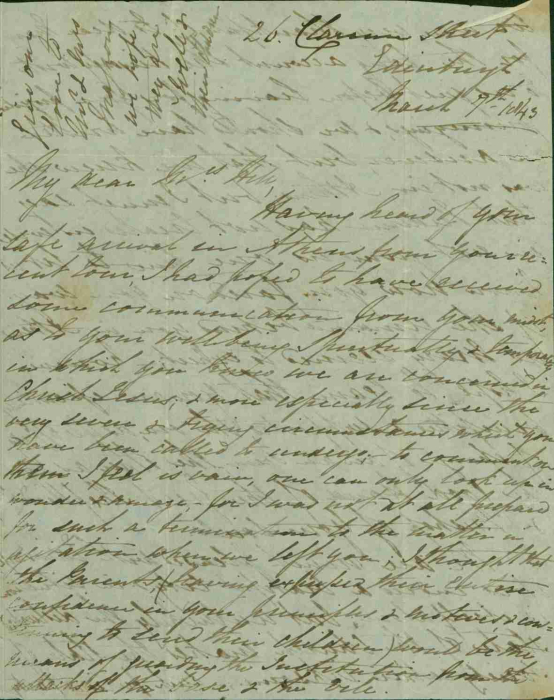 26. Clarence Street
Edinburgh
March 7th 1843
Give our
love to
and Mrs
we hope
they are
better
My dear Mrs Hill,
Having heard of your
safe arrival in Athens from your re-
cent tour, I had hoped to have received
some communication from you with
as to your well being Spiritually & temporally
in which you know we are concerned in
Christ Jesus, & more especially since the
very severe & trying circumstances which you
have been called to undergo, to comment on
them I feel is vain, one can only look up in
wonder & amaze, for I was not at all prepared
for such a termination to the matter in
agitation when we left you, I thought that
the Parents (having expressed their entire
confidence in your principles & motives & con-
tinuing to send their children) would be the
means of guarding the Institution from the
attacks of the base & the Evil.